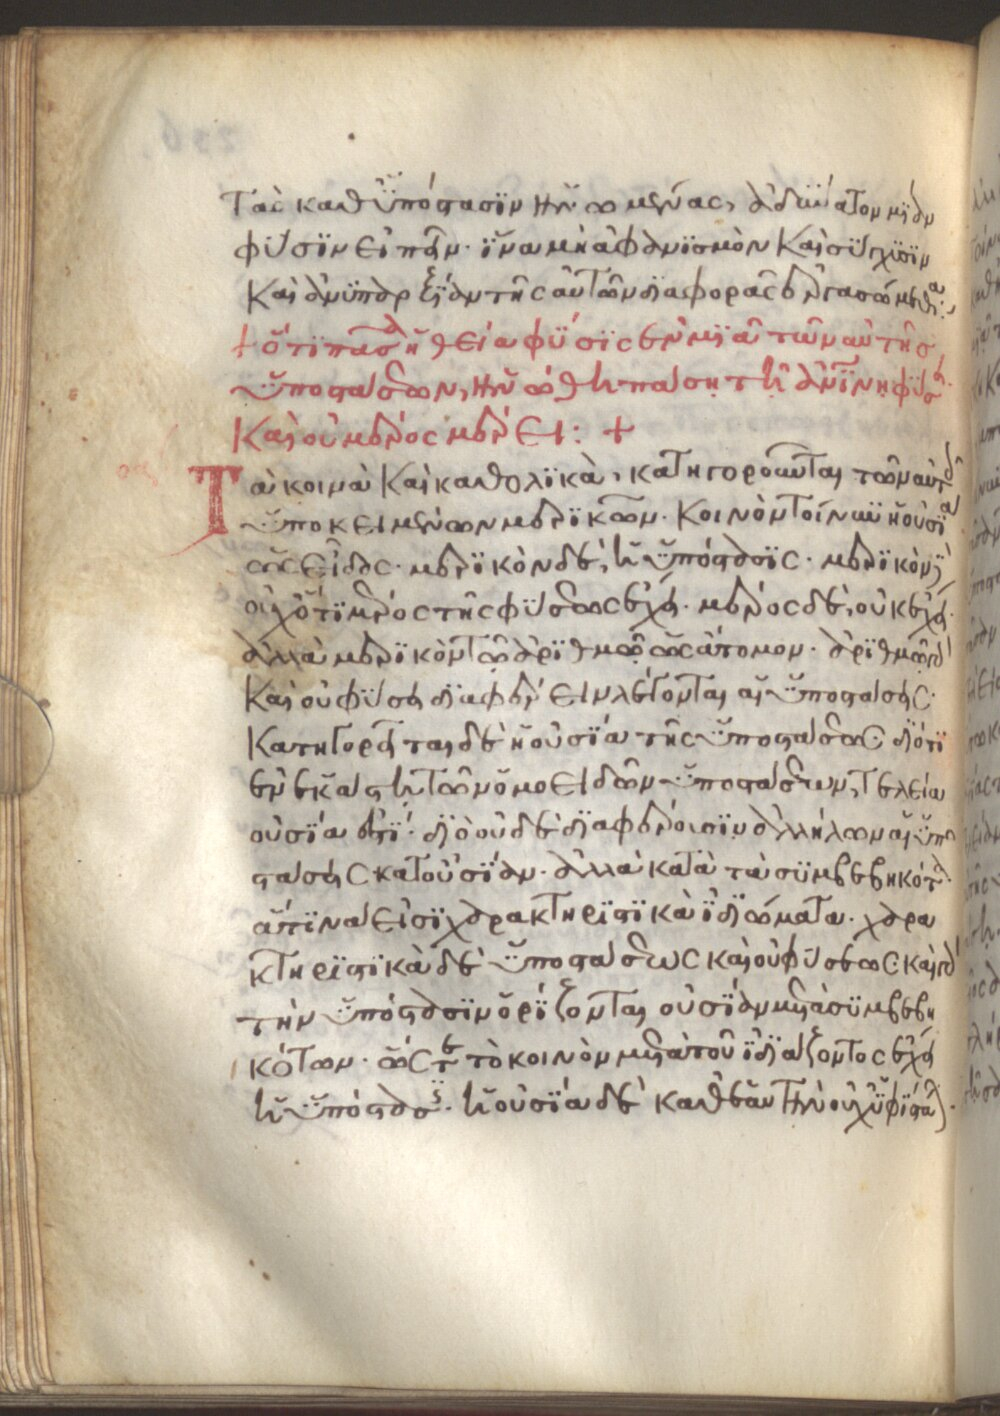 τὰς καθ' ὑπόστασιν ἡνωμένας, ἀδύνατον μίαν
φύσιν εἰπεῖν. ἵνα μὴ ἀφανισμὸν καὶ σύγχυσιν
καὶ ἀνυπαρξίαν τῆς αὐτῶν διαφορᾶς ἐργασώμεθα:
+ ὅτι πᾶσα ἡ θεία φύσις ἐν μιᾷ τῶν αὐτῆς
ὑποστάσεων, ἡνώθη πάσῃ τῇ ἀνθρωπίνῃ φύσει
καὶ οὐ μέρος μέρει: +
Τὰ κοινὰ καὶ καθολικὰ, κατηγοροῦνται τῶν αὐτοῖς
ὑποκειμένων μερικῶν. κοινὸν τοίνυν ἡ οὐσία
ὡς εἶδος. μερικὸν δὲ, ἡ ὑπόστασις. μερικὸν δὲ
οὐχ ὅτι μέρος τῆς φύσεως ἔχει. μέρος δὲ, οὐκ ἔχει.
ἀλλὰ μερικὸν τῷ ἀριθμῷ ὡς ἄτομον. ἀριθμῷ γὰρ
καὶ οὐ φύσει διαφέρειν λέγονται αἱ ὑποστάσεις.
κατηγορεῖται δὲ ἡ οὐσία τῆς ὑποστάσεως διότι
ἐν ἑκάστῃ τῶν ὁμοειδῶν ὑποστάσεων, τελεία
οὐσία ἐστί. διὸ οὐδὲ διαφέρουσιν ἀλλήλων αἱ ὑπο
στάσεις κατ' οὐσίαν. ἀλλὰ κατὰ τὰ συμβεβηκότα.
ἅτινα εἰσὶ χαρακτηριστικὰ ἰδιώματα. χαρα
κτηριστικὰ δὲ ὑποστάσεως καὶ οὐ φύσεως. καὶ γὰρ
τὴν ὑπόστασιν ὁρίζονται οὐσίαν μετὰ συμβεβη
κότων. ὥστε τὸ κοινὸν μετὰ τοῦ ἰδιάζοντος ἔχει
ἡ ὑπόστασις. ἡ οὐσία δὲ καθ' ἑαυτὴν οὐχ ὑφίσταται.